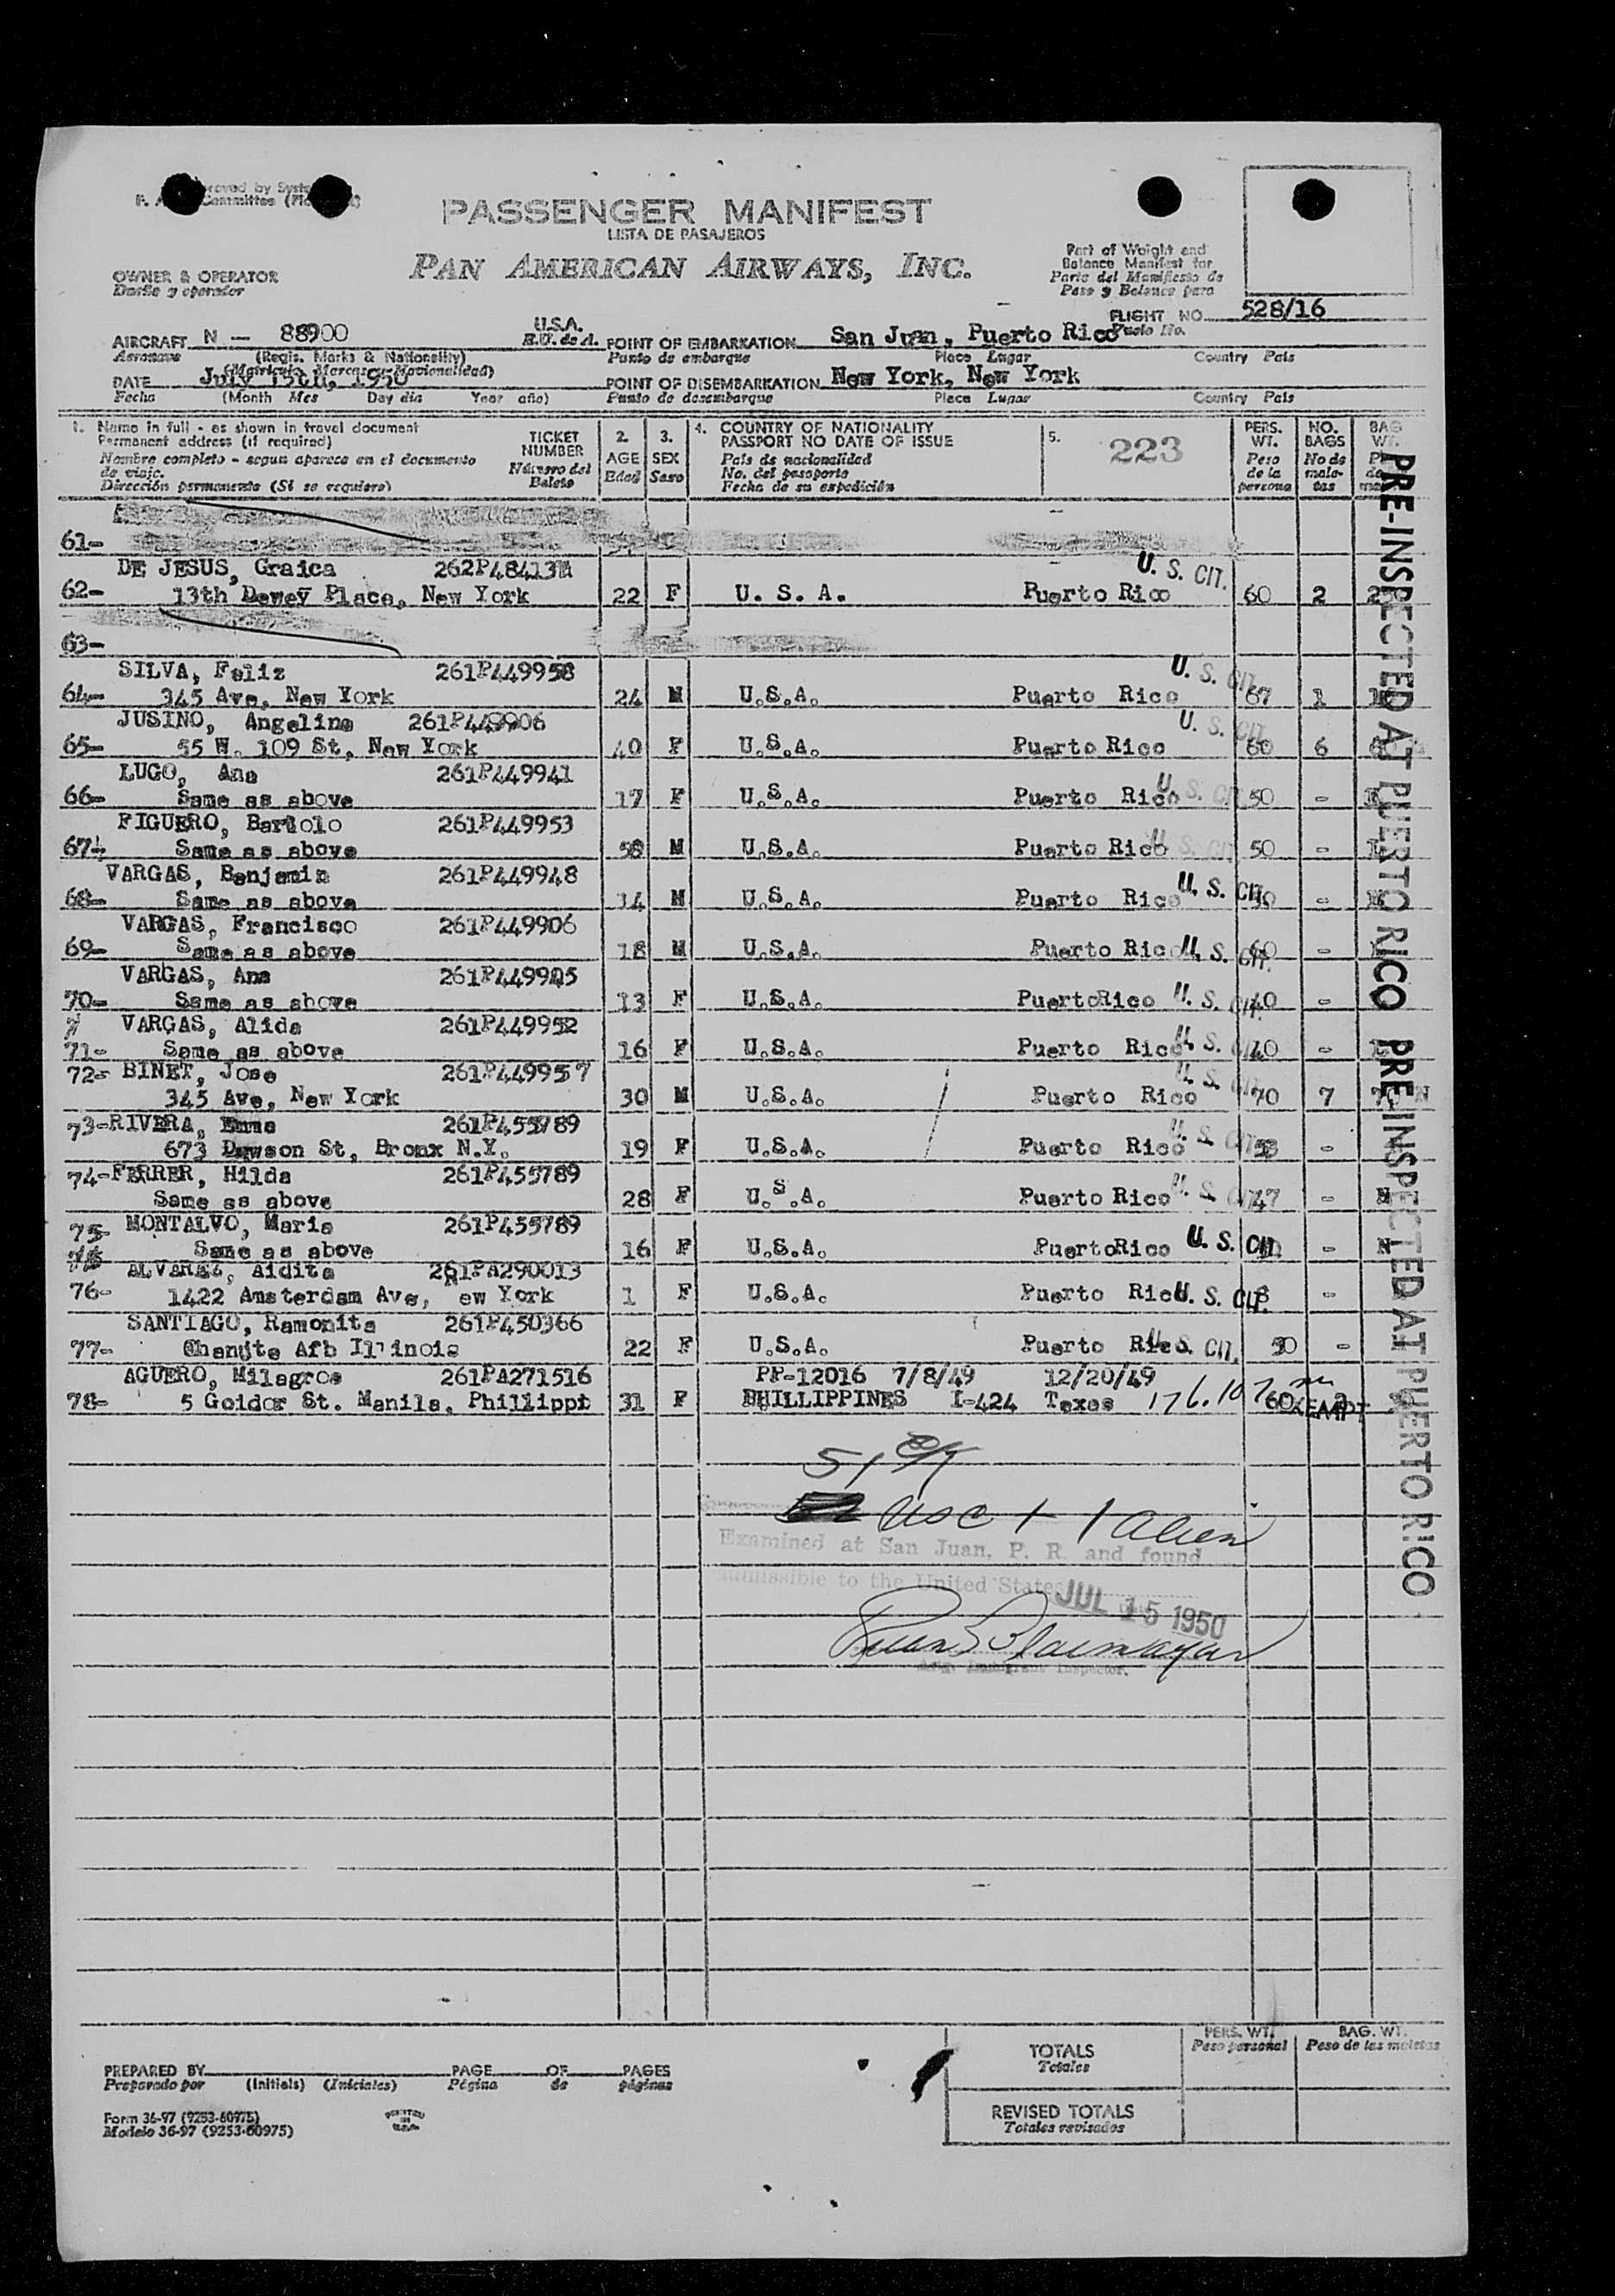 PASSENGER MANIFEST
LISTA DE PASAJEROS
PAN AMERICAN AIRWAYS, INC.
Part of Weight and
Balance Manifest for
Parte del Manifiesto de
Peso y Balance para
OWNER & OPERATOR
Dueño y operador
FLIGHT NO. 528/16
Vuelo No.
AIRCRAFT N - 88900 U.S.A. E.U. de A. POINT OF EMBARKATION San Juan, Puerto Rico
Aeronave (Regis. Marks & Nationality) Punto de embarque Place Lugar Country Pais
(Matricula Marcas y Nacionalidad)
DATE July 15th, 1950 POINT OF DISEMBARKATION New York, New York
Fecha (Month Mes Day dia Year año) Punto de desembarque Place Lugar Country Pais
1. Name in full - as shown in travel document
Permanent address (if required)
Nombre completo - segun aparece en el documento
de viaje.
Dirección permanente (Si se requiere)
TICKET
NUMBER
Número del
Boleto
2.
AGE
Edad
3.
SEX
Sexo
4. COUNTRY OF NATIONALITY
PASSPORT NO DATE OF ISSUE
País de nacionalidad
No. del pasaporte
Fecha de su expedición
5. 223
PERS.
WT.
Peso
de la
persona
NO.
BAGS
No de
male-
tas
BAG
WT.
61-
DE JESUS, Graica 262P48413
62- 13th Dewey Place, New York 22 F U. S. A. Puerto Rico U. S. CIT. 60 2
63-
SILVA, Feliz 261P449958
64- 345 Ave, New York 24 M U.S.A. Puerto Rico U. S. CIT. 67 1
JUSINO, Angelina 261P449906
65- 55 W. 109 St, New York 40 F U.S.A. Puerto Rico U. S. CIT. 60 6
LUGO, Ana 261P449941
66- Same as above 17 F U.S.A. Puerto Rico U. S. CIT. 50 -
FIGUERO, Bartolo 261P449953
67- Same as above 58 M U.S.A. Puerto Rico U. S. CIT. 50 -
VARGAS, Benjamin 261P449948
68- Same as above 14 M U.S.A. Puerto Rico U. S. CIT. -
VARGAS, Francisco 261P449906
69- Same as above 18 M U.S.A. Puerto Rico U. S. CIT. 60 -
VARGAS, Ana 261P449945
70- Same as above 13 F U.S.A. PuertoRico U. S. CIT. 40 -
VARGAS, Alida 261P449952
71- Same as above 16 F U.S.A. Puerto Rico U. S. CIT. 40 -
72- BINET, Jose 261P449957
345 Ave, New York 30 M U.S.A. Puerto Rico U. S. CIT. 70 7
73- RIVERA, Emma 261P455789
673 Dawson St, Bronx N.Y. 19 F U.S.A. Puerto Rico U. S. CIT. 53 -
74- FERRER, Hilda 261P455789
Same as above 28 F U.S.A. Puerto Rico U. S. CIT. 47 - N
75- MONTALVO, Maria 261P455789
Same as above 16 F U.S.A. PuertoRico U. S. CIT. - N
ALVAREZ, Aidita 261PA290013
76- 1422 Amsterdam Ave, New York 1 F U.S.A. Puerto Rico U. S. CIT. 8 -
SANTIAGO, Ramonita 261P450366
77- Chanute Afb Illinois 22 F U.S.A. Puerto Rico U. S. CIT. 50 -
AGUERO, Milagros 261PA271516 PP-12016 7/8/49 12/20/49
78- 5 Goldor St. Manila, Phillippi 31 F PHILLIPPINES I-424 Texas 60 EXEMPT
51
usc + 1 alien
Examined at San Juan, P. R. and found
admissible to the United States
JUL 15 1950
Immigrant Inspector.
PRE-INSPECTED AT PUERTO RICO PRE-INSPECTED AT PUERTO RICO
PERS. WT. BAG. WT.
Peso personal Peso de las maletas
TOTALS
Totales
PREPARED BY PAGE OF PAGES
Preparado por (Initials) (Iniciales) Página de páginas
REVISED TOTALS
Totales revisados
Form 36-97 (9253-60975)
Modelo 36-97 (9253-60975)
PRINTED
IN
U.S.A.